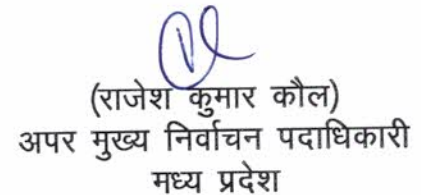 (राजेश कुमार कौल)
अपर मुख्य निर्वाचन पदाधिकारी
मध्य प्रदेश